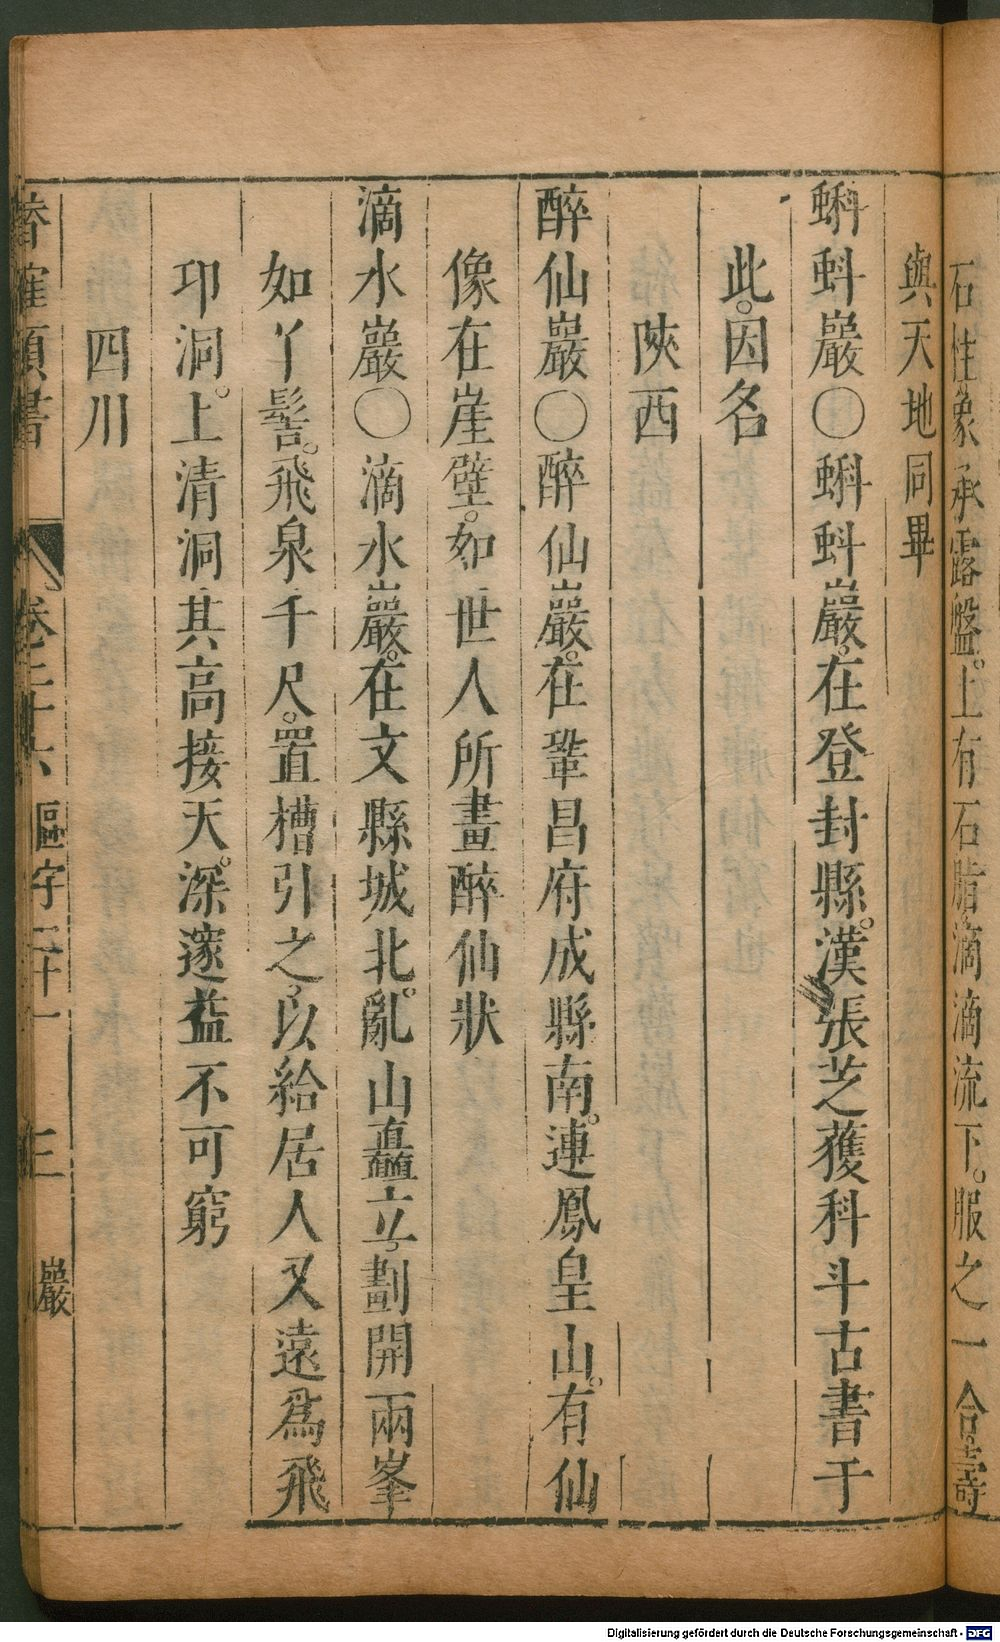 石性象承露盤。上有石脂滴滴流下。服之一合。壽
與天地同畢
蝌蚪巖〇蝌蚪巖。在登封縣。漢張芝獲科斗古書于
此。因名
陝西
醉仙巖〇醉仙巖。在鞏昌府成縣南。連鳳皇山。有仙
像在崖壁。如世人所畫醉仙狀
滴水巖〇滴水巖。在文縣城北。亂山矗立。劃開兩峯
如丫髻。飛泉千尺。置槽引之。以給居人又遠爲飛
卭洞。上清洞其高接天。深邃益不可窮
四川
卷二十六
謳字二十一
三
巖
Digitalisierung gefördert durch die Deutsche Forschungsgemeinschaft - DFG